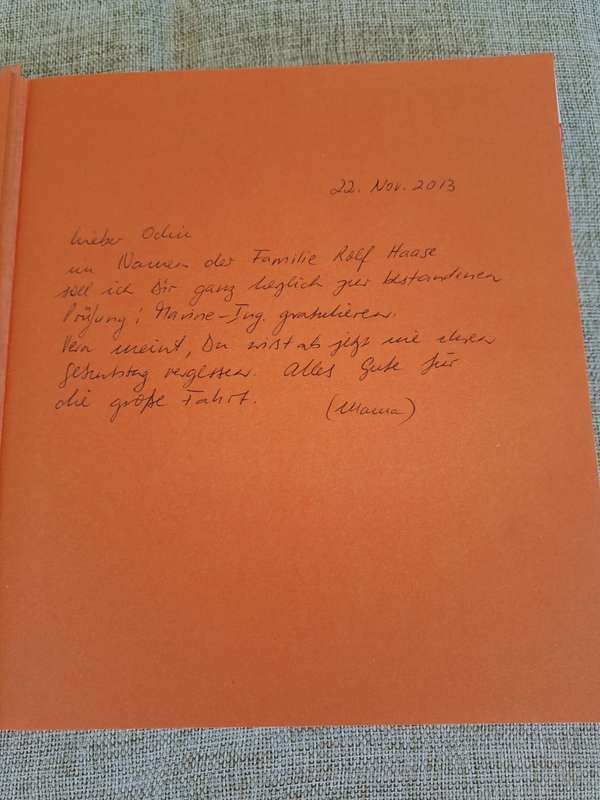 22. Nov. 2013
Lieber Odin
im Namen der Familie Rolf Haase
soll ich Dir ganz herzlich zur bestandenen
Prüfung: Marine-Ing. gratulieren.
Vera meint, Du wirst ab jetzt nie ihren
Geburtstag vergessen. Alles Gute für
die große Fahrt. (Mama)